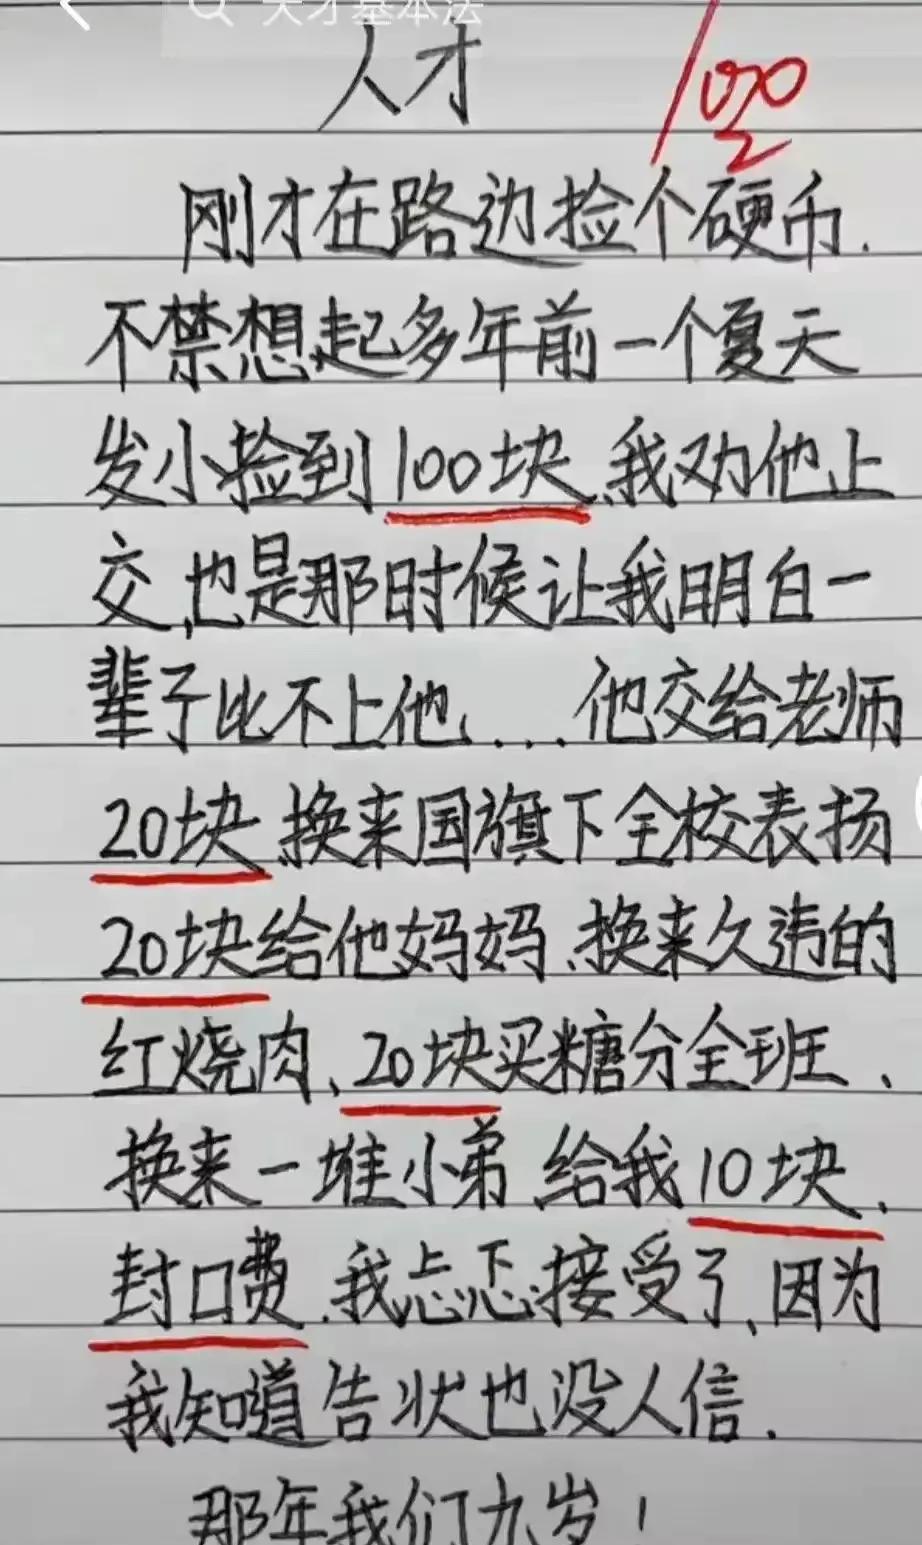 天才基本法
人才
100
刚才在路边捡个硬币.
不禁想起多年前一个夏天
发小捡到100块、我劝他上
交、也是那时候让我明白一
辈子比不上他....他交给老师
20块、换来国旗下全校表扬
20块给他妈妈、换来久违的
红烧肉、20块买糖分全班、
换来一堆小弟、给我10块、
封口费、我忐忑接受了、因为
我知道告状也没人信.
那年我们九岁!